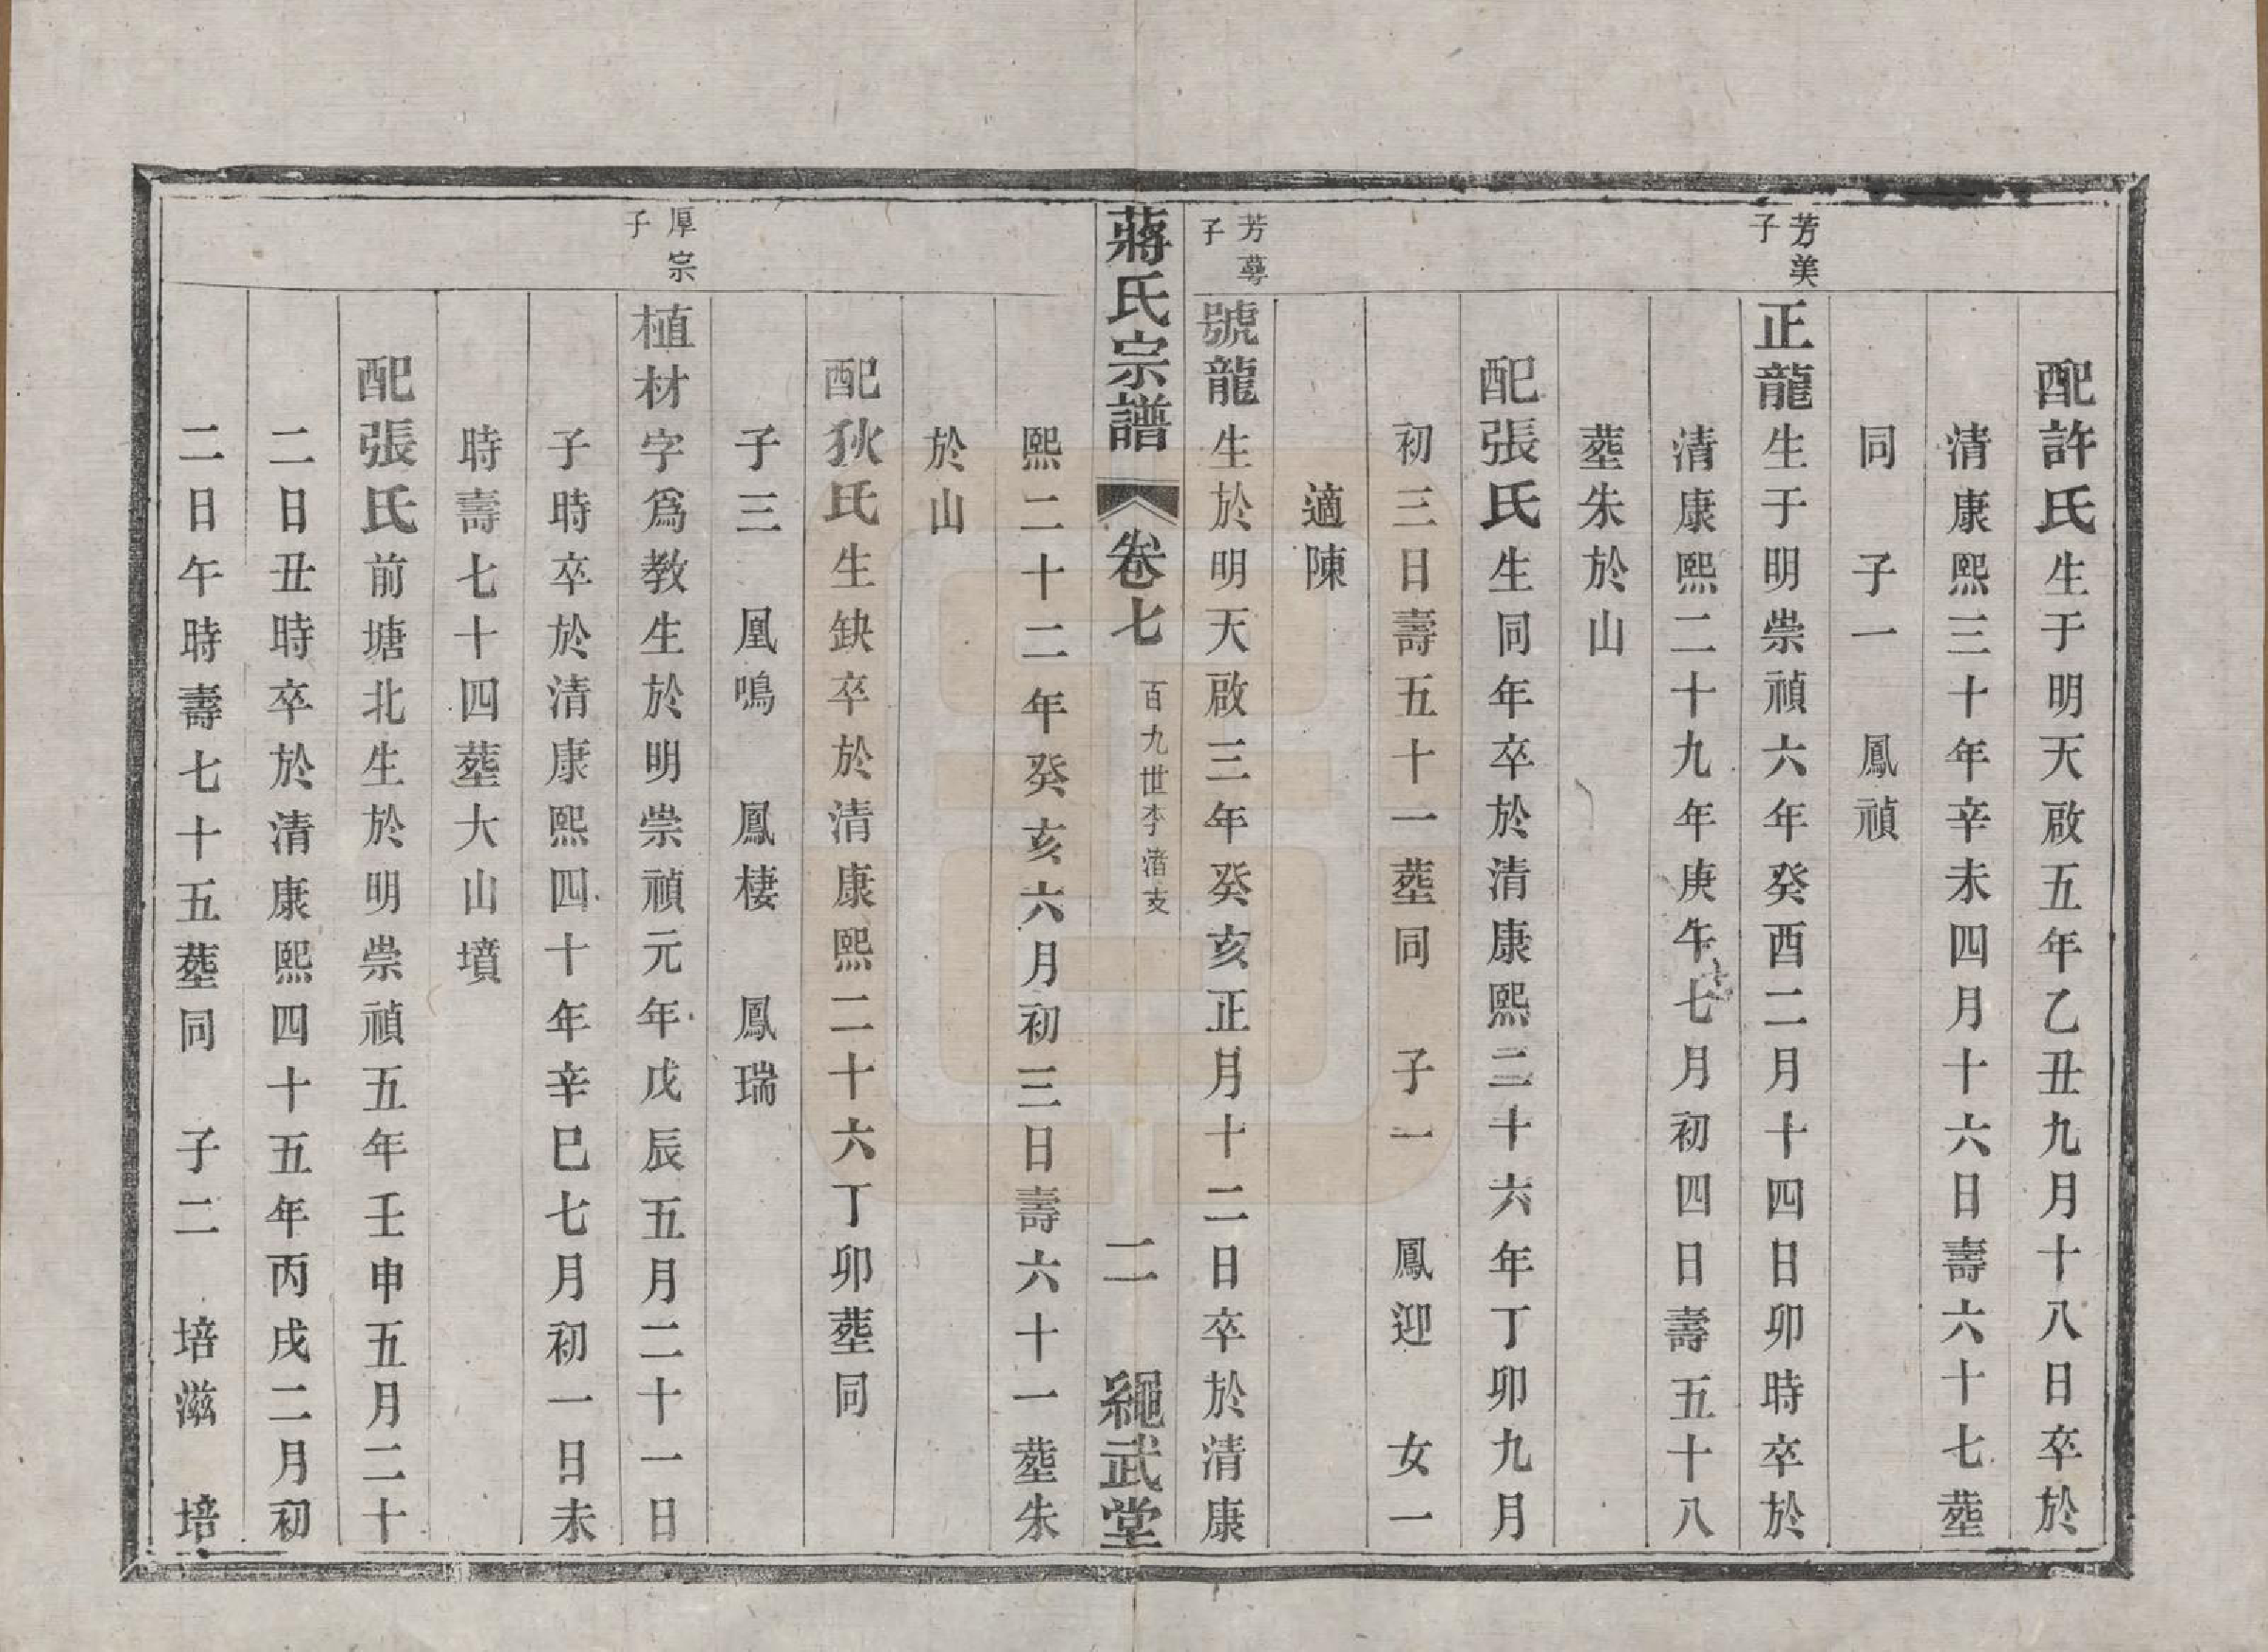 配許氏生于明天啟五年乙丑九月十八日卒於
清康熙三十年辛未四月十六日壽六十七塟
同 子一 鳳禎
芳美子
正龍生于明崇禎六年癸酉二月十四日卯時卒於
清康熙二十九年庚午七月初四日壽五十八
塟朱於山
配張氏生同年卒於清康熙二十六年丁卯九月
初三日壽五十一塟同 子一 鳳迎 女一
適陳
芳蕚子
號龍生於明天啟三年癸亥正月十二日卒於清康
蔣氏宗譜 卷七 百九世李渚支 二 繩武堂
熙二十二年癸亥六月初三日壽六十一塟朱
於山
配狄氏生缺卒於清康熙二十六丁卯塟同
子三 凰鳴 鳳棲 鳳瑞
厚宗子
植材字為教生於明崇禎元年戊辰五月二十一日
子時卒於清康熙四十年辛巳七月初一日未
時壽七十四塟大山墳
配張氏前塘北生於明崇禎五年壬申五月二十
二日丑時卒於清康熙四十五年丙戌二月初
二日午時壽七十五塟同 子二 培滋 培